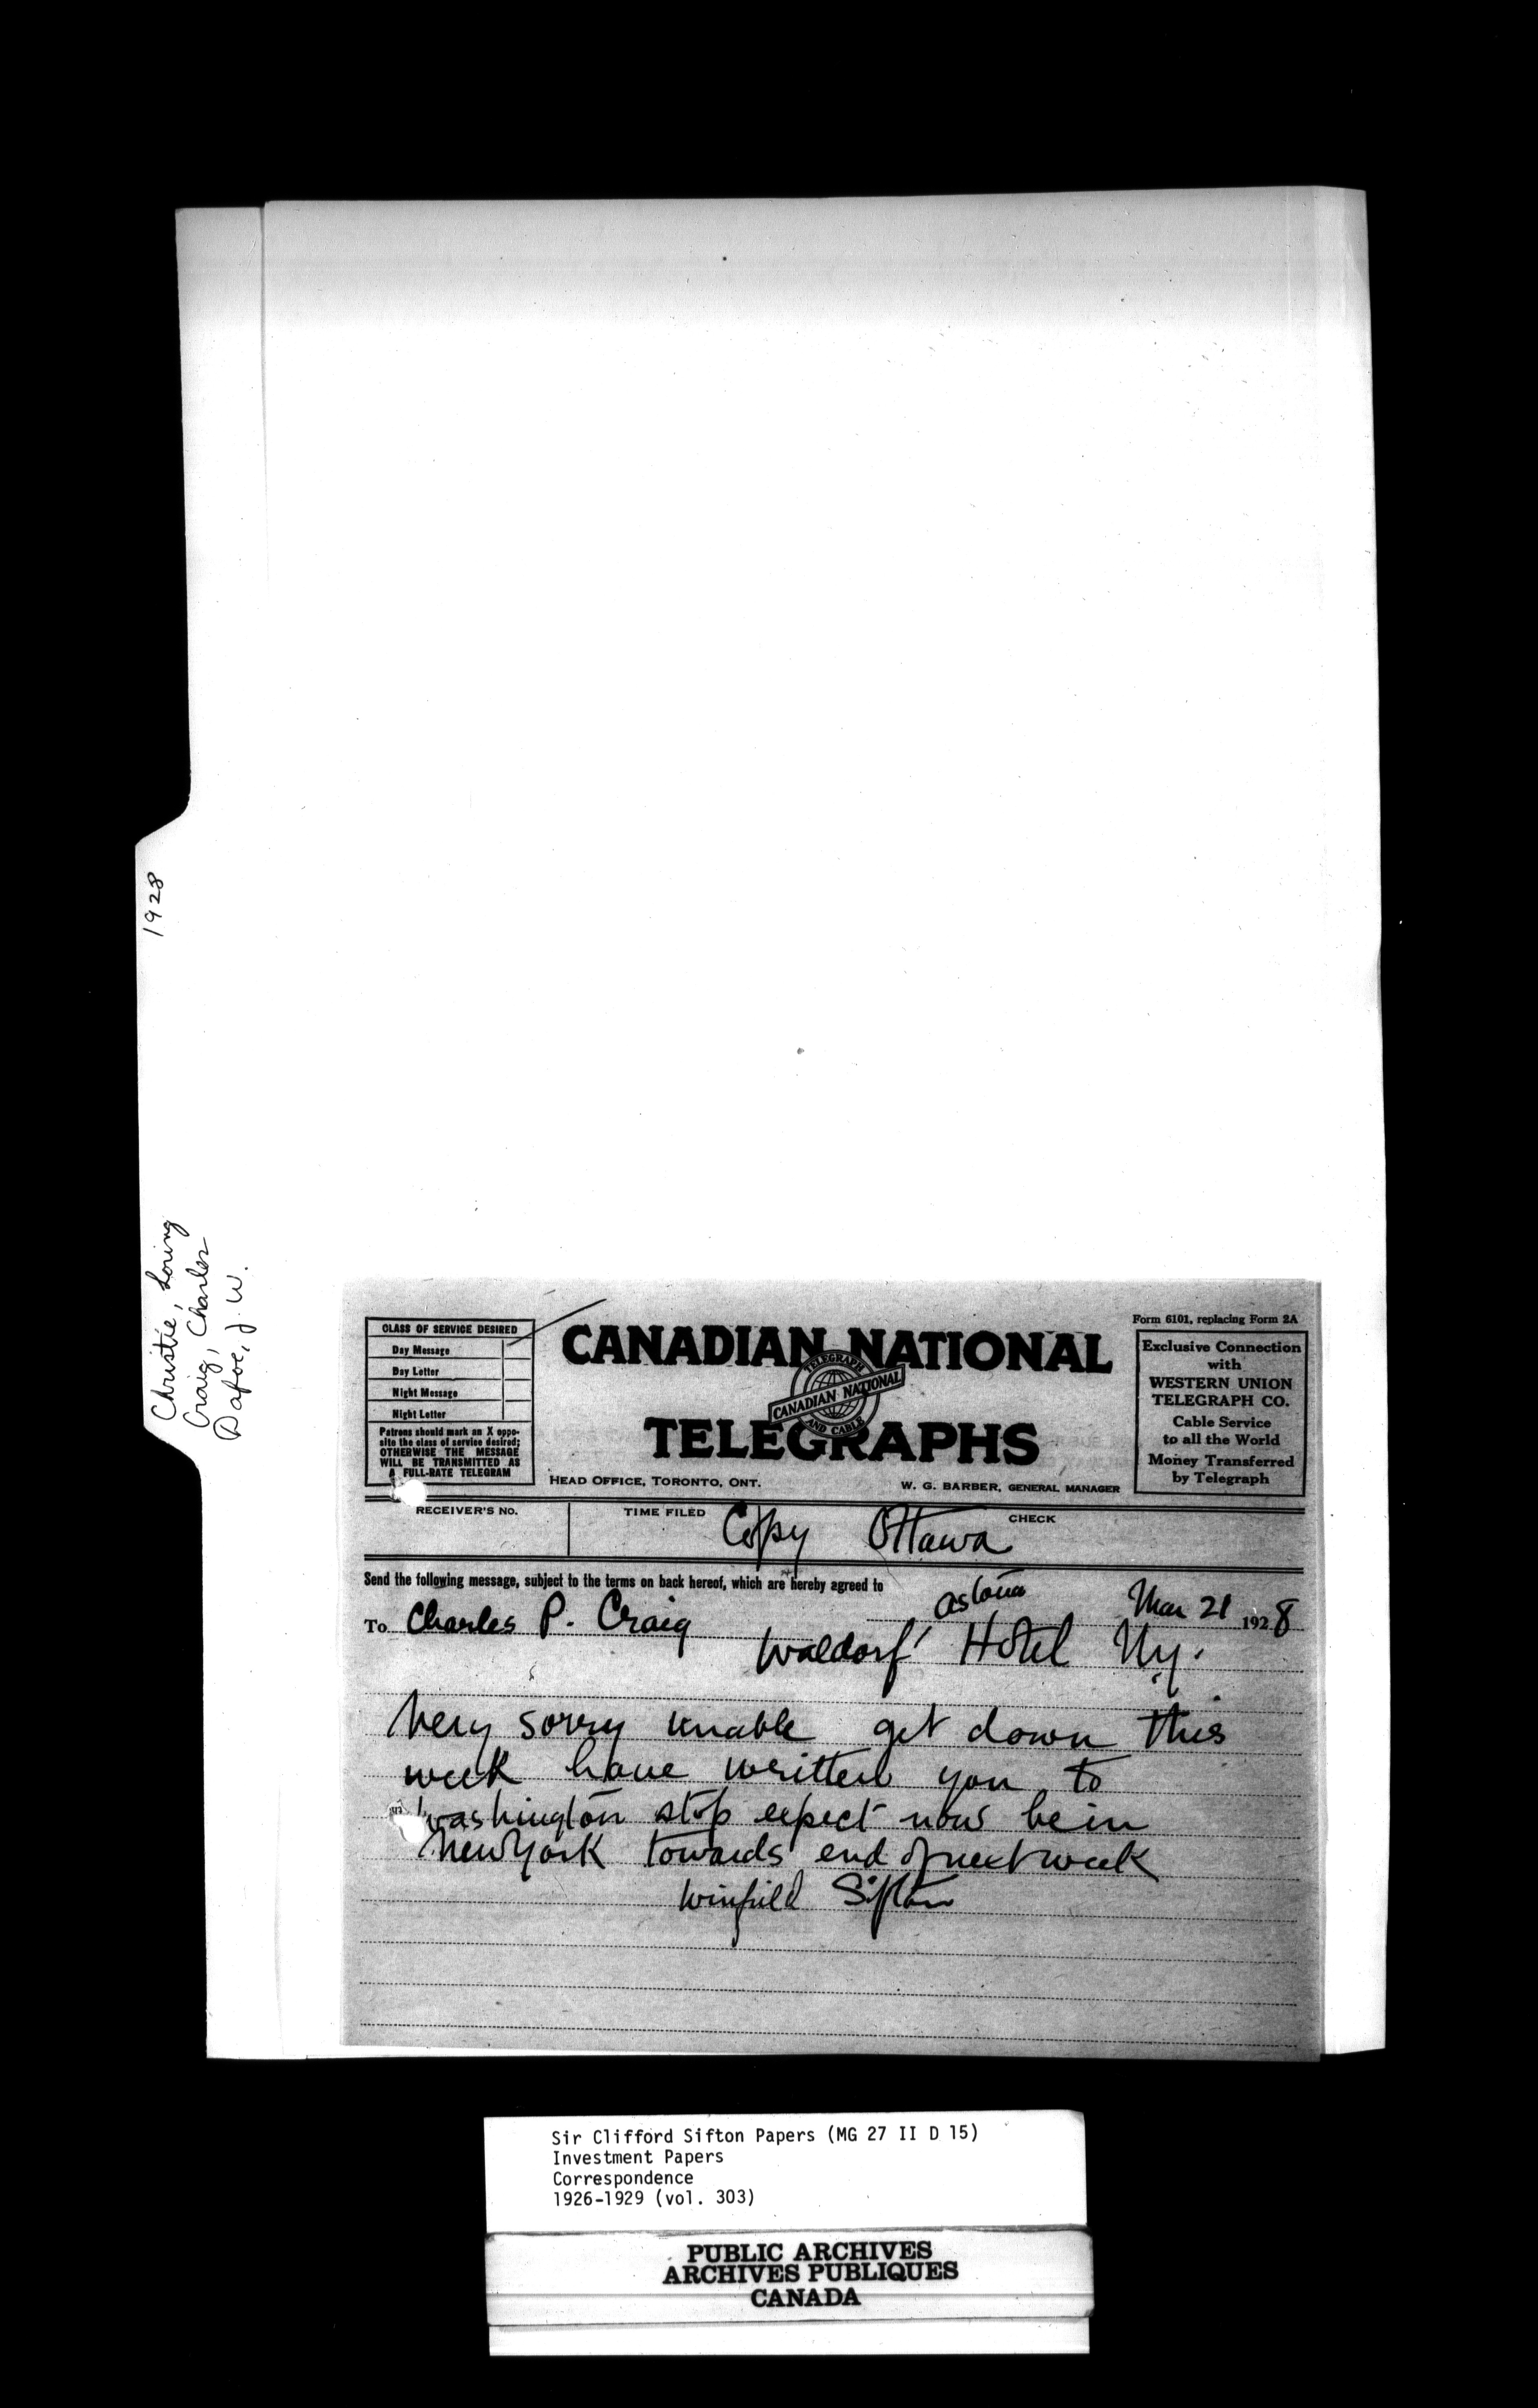 1928
Christie, Loring
Craig, Charles
Dafoe, J. W.
Form 6101, replacing Form 2A
CLASS OF SERVICE DESIRED
Day Message
Day Letter
Night Message
Night Letter
Patrons should mark an X oppo-
site the class of service desired;
OTHERWISE THE MESSAGE
WILL BE TRANSMITTED AS
A FULL-RATE TELEGRAM
CANADIAN NATIONAL
TELEGRAPHS
TELEGRAPH
CANADIAN NATIONAL
AND CABLE
HEAD OFFICE, TORONTO, ONT.
W. G. BARBER, GENERAL MANAGER
Exclusive Connection
with
WESTERN UNION
TELEGRAPH CO.
Cable Service
to all the World
Money Transferred
by Telegraph
RECEIVER'S NO.
TIME FILED
CHECK
Copy Ottawa
Send the following message, subject to the terms on back hereof, which are hereby agreed to
Mar 21 1928
To Charles P. Craig
Astoria
Waldorf Hotel Ny.
Very sorry unable get down this
week have written you to
Washington stop expect now be in
New York towards end of next week
Winfield Sifton
Sir Clifford Sifton Papers (MG 27 II D 15)
Investment Papers
Correspondence
1926-1929 (vol. 303)
PUBLIC ARCHIVES
ARCHIVES PUBLIQUES
CANADA